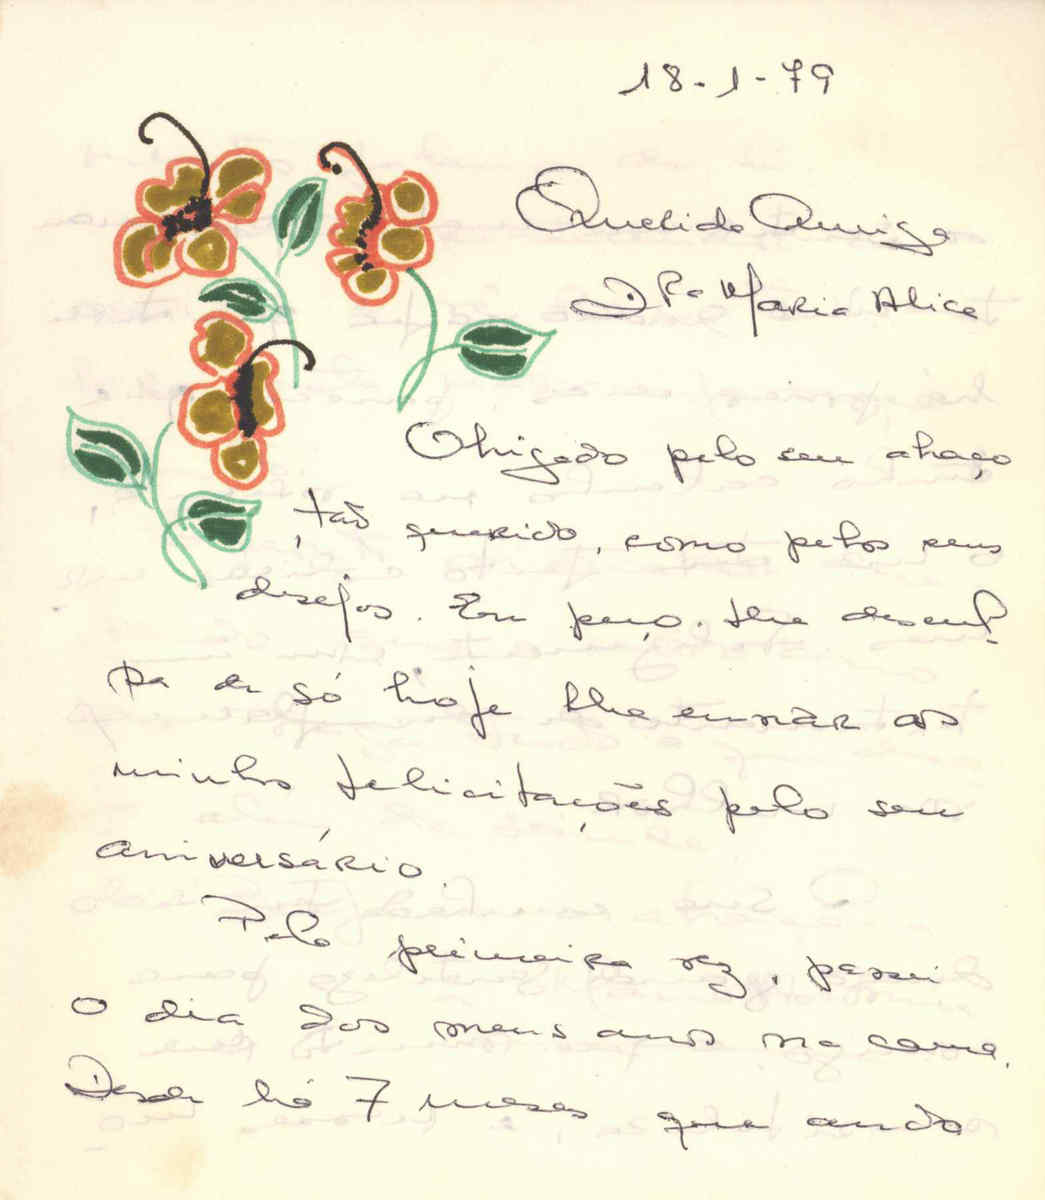 18-1-79
Querida Amiga
Dra Maria Alice
Obrigado pelo seu abraço
tão querido, como pelos seus
desejos. Eu peço-lhe descul-
pa de só hoje lhe enviar as
minhas felicitações pelo seu
aniversário.
Pela primeira vez, passei
o dia dos meus anos na cama.
Desde há 7 meses que ando